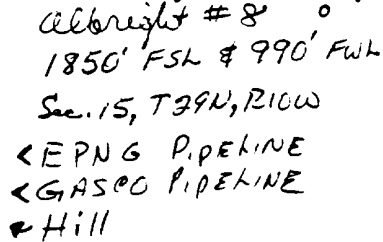 Albright #8
1850' FSL & 990' FWL
Sec. 15, T29N, R10W
< EPNG PIPELINE
< GASCO PIPELINE
Hill